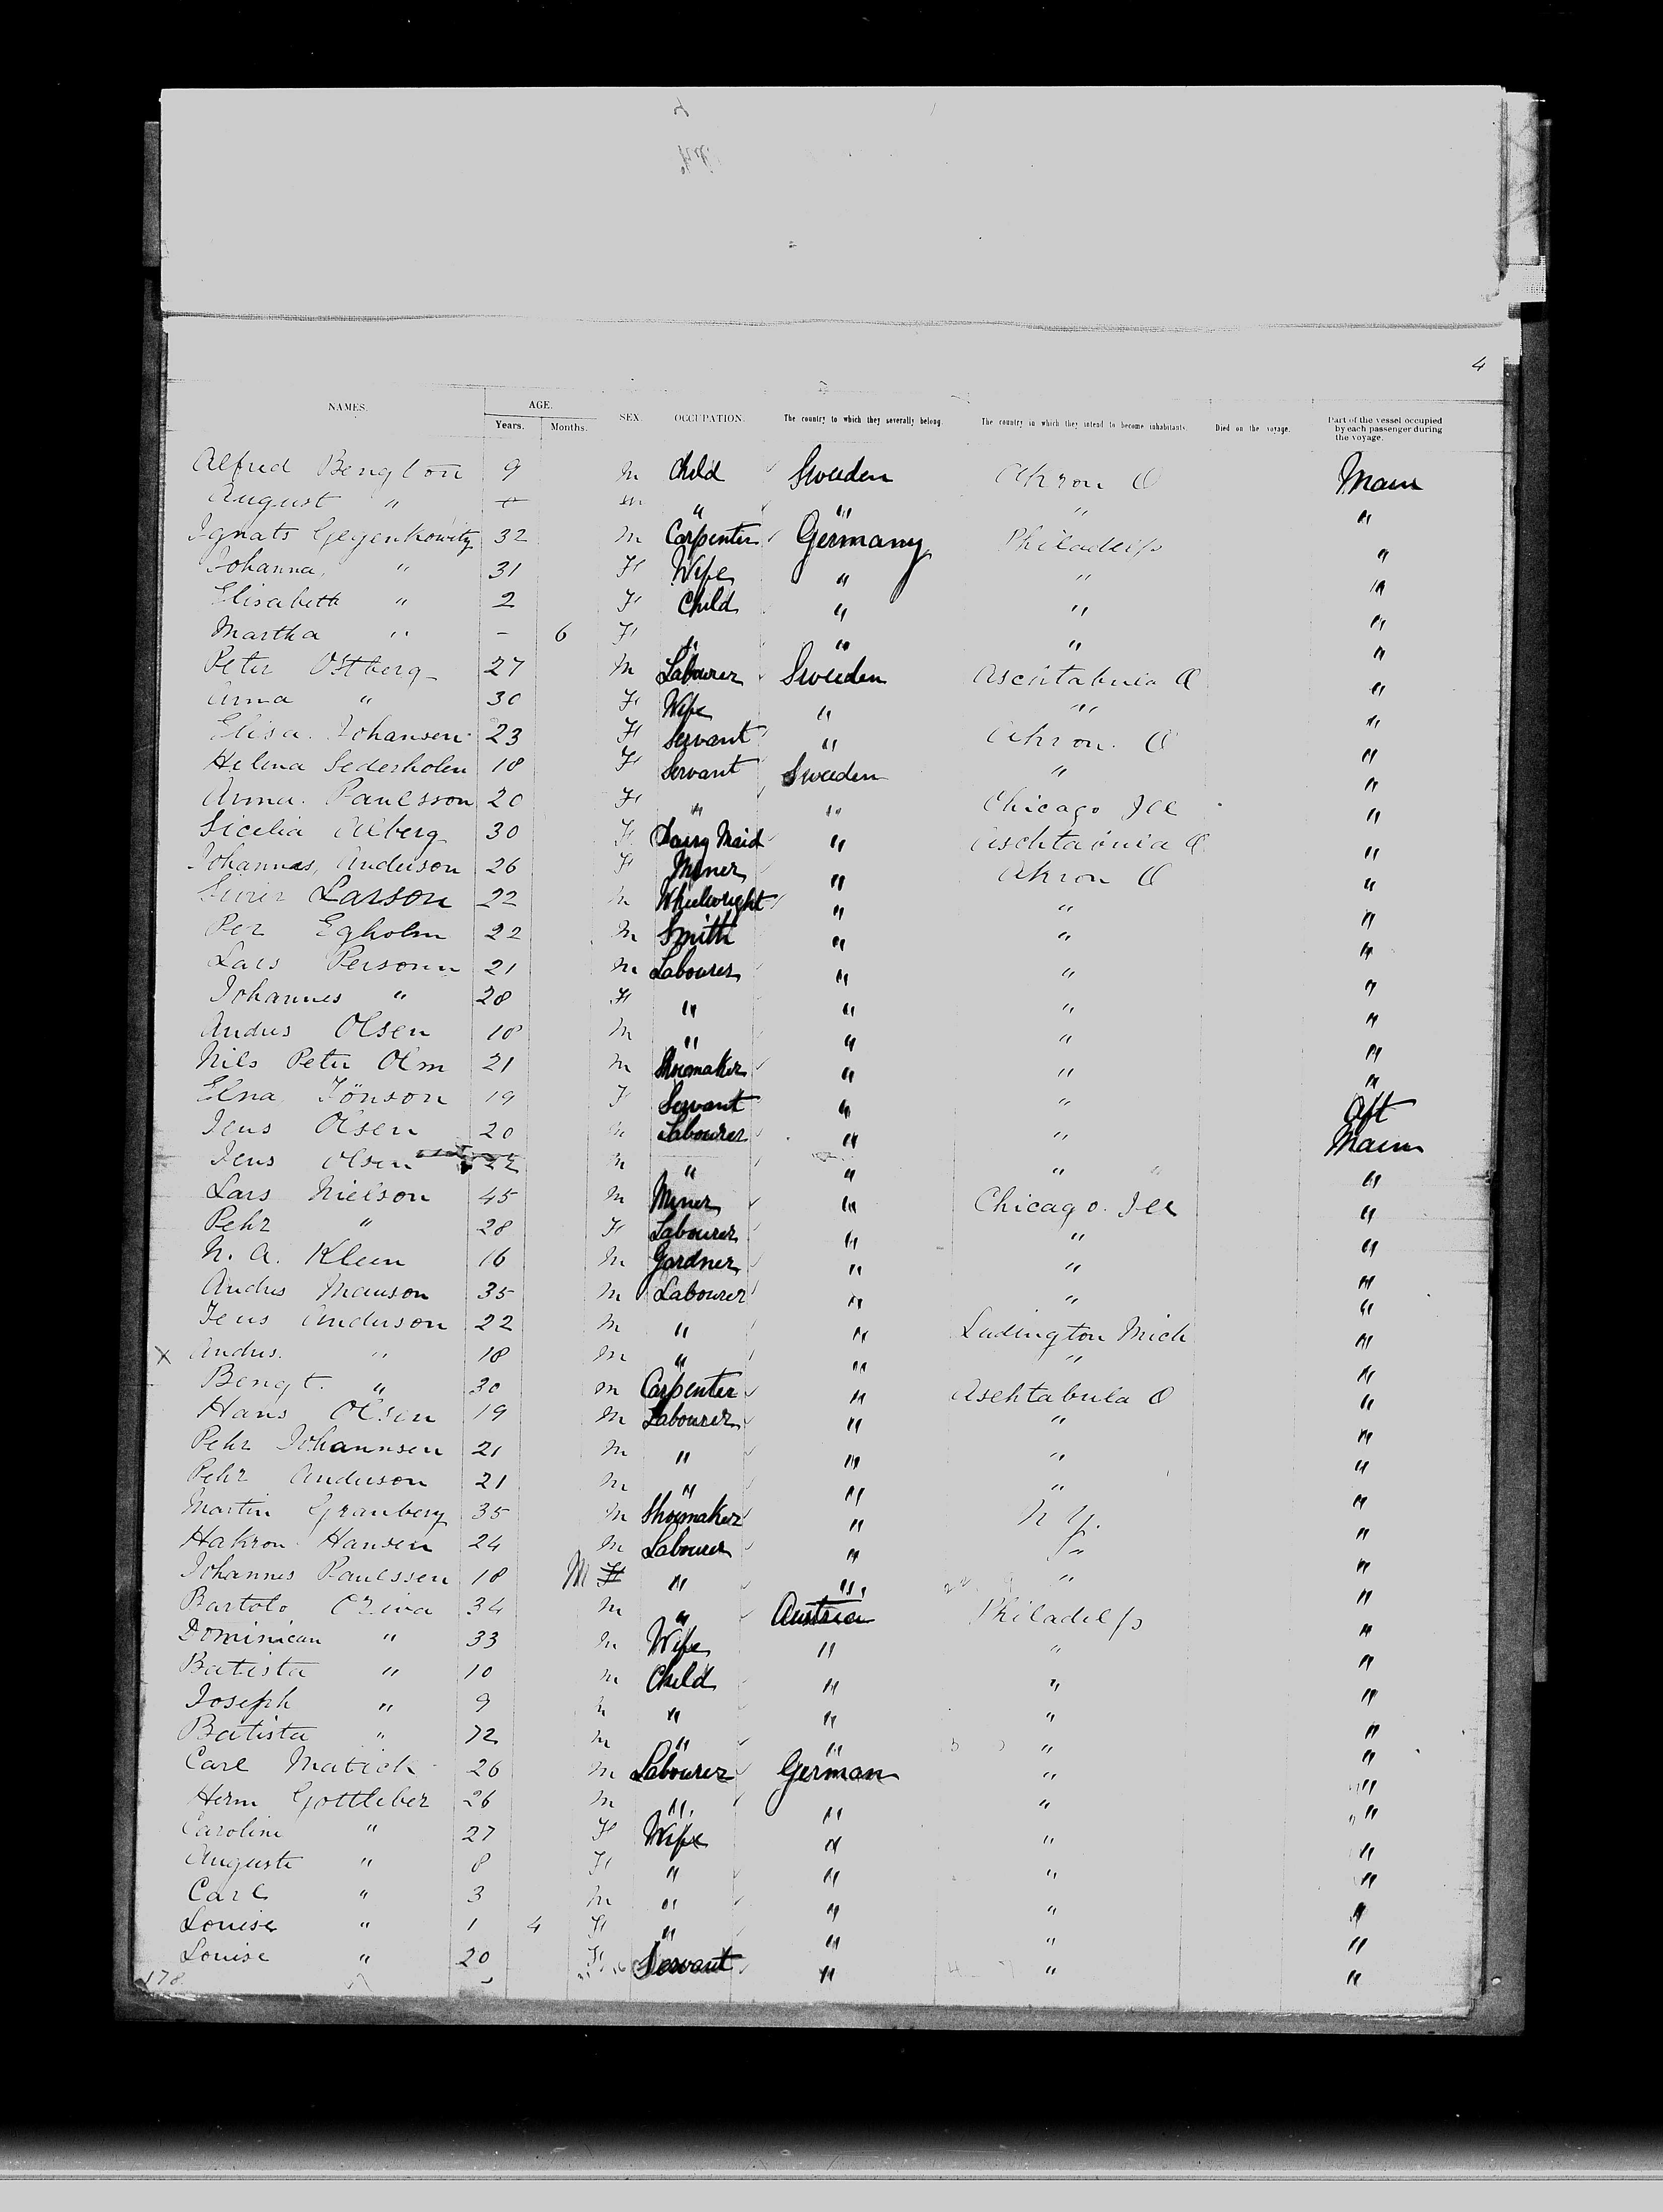 4
NAMES. AGE. SEX. OCCUPATION. The country to which they severally belong. The country in which they intend to become inhabitants. Died on the voyage. Part of the vessel occupied by each passenger during the voyage.
Years. Months.
Alfred Bengtson 9 M Child Sweden Akron O Main
August " m " " " "
Ignats Gegenkowitz 32 M Carpenter Germany Philadelp "
Johanna " 31 F Wife " " "
Elisabeth " 2 F Child " " "
Martha " - 6 F " " " "
Peter Ostberg 27 M Labourer Sweden Aschtabula O "
Anna " 30 F Wife " " "
Elisa Johansen 23 F Servant " Akron O "
Helena Sederholm 18 F Servant Sweden " "
Anna Paulsson 20 F " " Chicago Ill "
Sicelia Alberg 30 F Dairy Maid " Aschtabula O "
Johannes Anderson 26 F Miner " Akron O "
Larson 22 M Wheelwright " " "
Per Egholm 22 M Smith " " "
Lars Personn 21 M Labourer " " "
Johannes " 28 F " " " "
Andres Olsen 18 M " " " "
Nils Peter Olm 21 M Shoemaker " " "
Elna Jönson 19 F Servant " " Aft
Jens Olsen 20 M Labourer " " Main
Jens Olsen 22 M " " " " "
Lars Nielson 45 M Miner " Chicago Ill "
Pehr " 28 F Labourer " " "
N. A. Kleen 16 M Gardner " " "
Andres Manson 35 M Labourer " " "
Jens Anderson 22 M " " Ludington Mich "
X Andres " 18 M " " " "
Bengt " 30 m Carpenter " Aschtabula O "
Hans Olsen 19 M Labourer " " "
Pehr Johannsen 21 M " " " "
Pehr Anderson 21 M " " " "
Martin Granberg 35 M Shoemaker " N Y. "
Hakron Hansen 24 M Labourer " " "
Johannes Paulssen 18 M F " " " "
Bartolo Oliva 34 M " Austria Philadelp "
Dominican " 33 M Wife " " "
Batista " 10 M Child " " "
Joseph " 9 M " " " "
Batista " 72 M " " " "
Carl Matich 26 M Labourer German " "
Herm Gottleber 26 M " " " "
Caroline " 27 F Wife " " "
Auguste " 8 F " " " "
Carl " 3 M " " " "
Louise " 1 4 F " " " "
Louise " 20 F Servant " " "
178